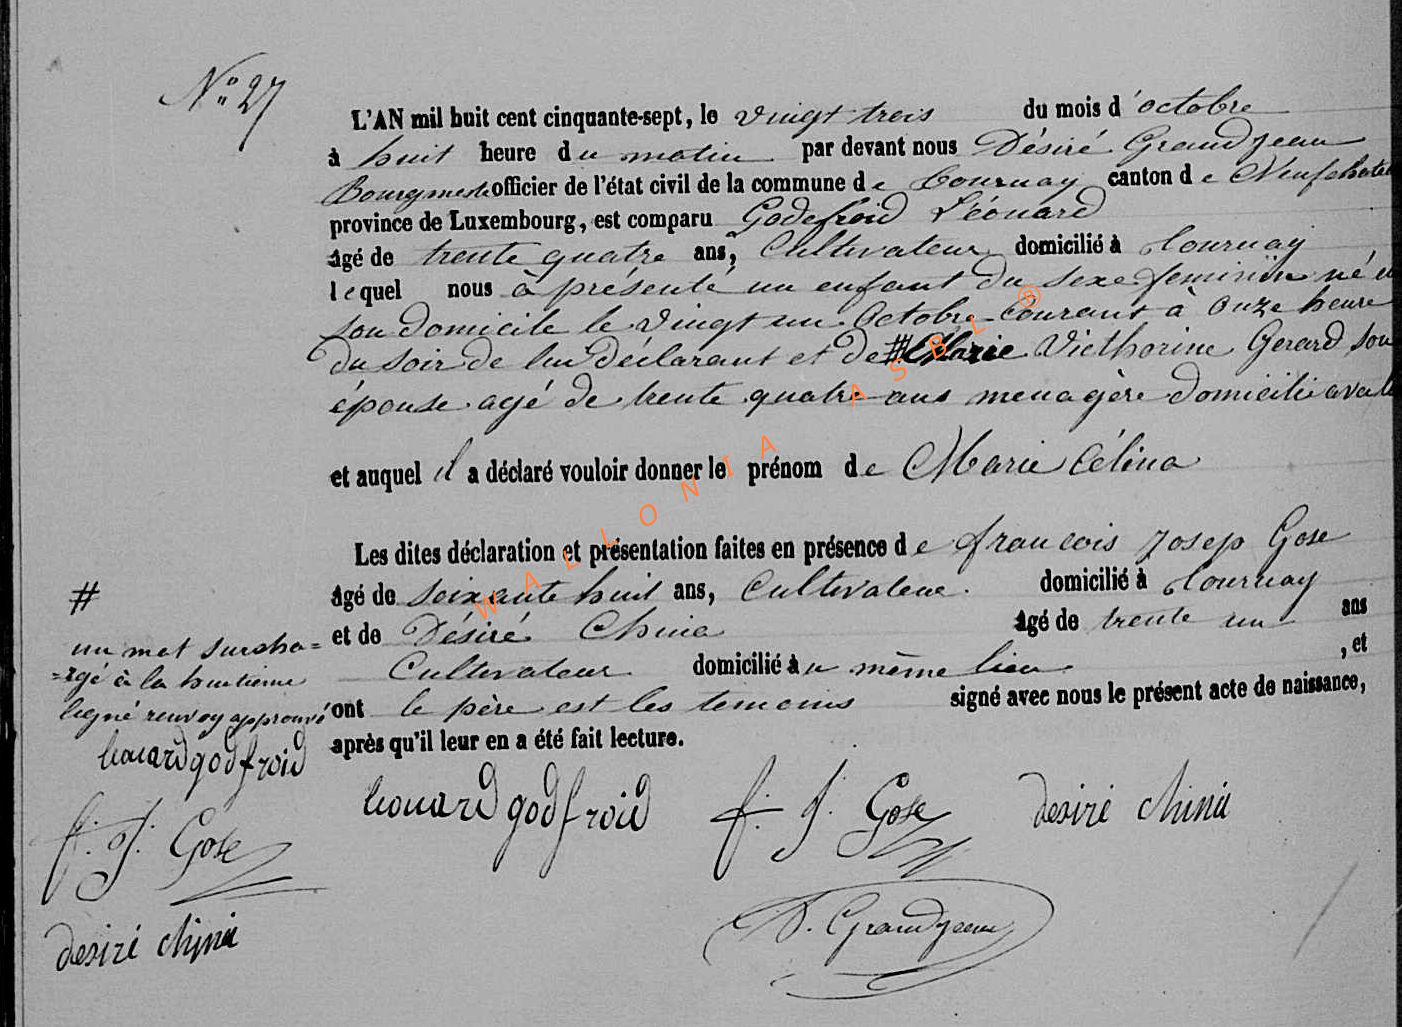 N° 27
L'AN mil huit cent cinquante-sept, le vingt trois du mois d'octobre
à huit heure du matin par devant nous Désiré Grandjean
Bourgmestre officier de l'état civil de la commune de Tournay canton de Neufchateau
province de Luxembourg, est comparu Godefroid Léonard
âgé de trente quatre ans, Cultivateur domicilié à Tournay
lequel nous à présenté un enfant du sexe feminin né en
son domicile le vingt un Octobre courant à onze heure
du soir de lui déclarant et de # Marie Victhorine Gerard son
épouse agé de trente quatre ans menagère domicilié avec lui
et auquel il a déclaré vouloir donner le prénom de Marie Célina
Les dites déclaration et présentation faites en présence de francois Josep Gose
âgé de soixante huit ans, Cultivateur domicilié à Tournay
et de Désiré China âgé de trente un ans
Cultivateur domicilié au même lieu , et
ont le père est les temoins signé avec nous le présent acte de naissance,
après qu'il leur en a été fait lecture.
#
un mot surcha=
=rgé à la huitieme
ligné renvoy approuvé
leonard godfroid
f. J. Gose
desiré chinà
leonard godfroid f. J. Gose desiré chinà
D. Grandjean
WALLONIA ASBL ®